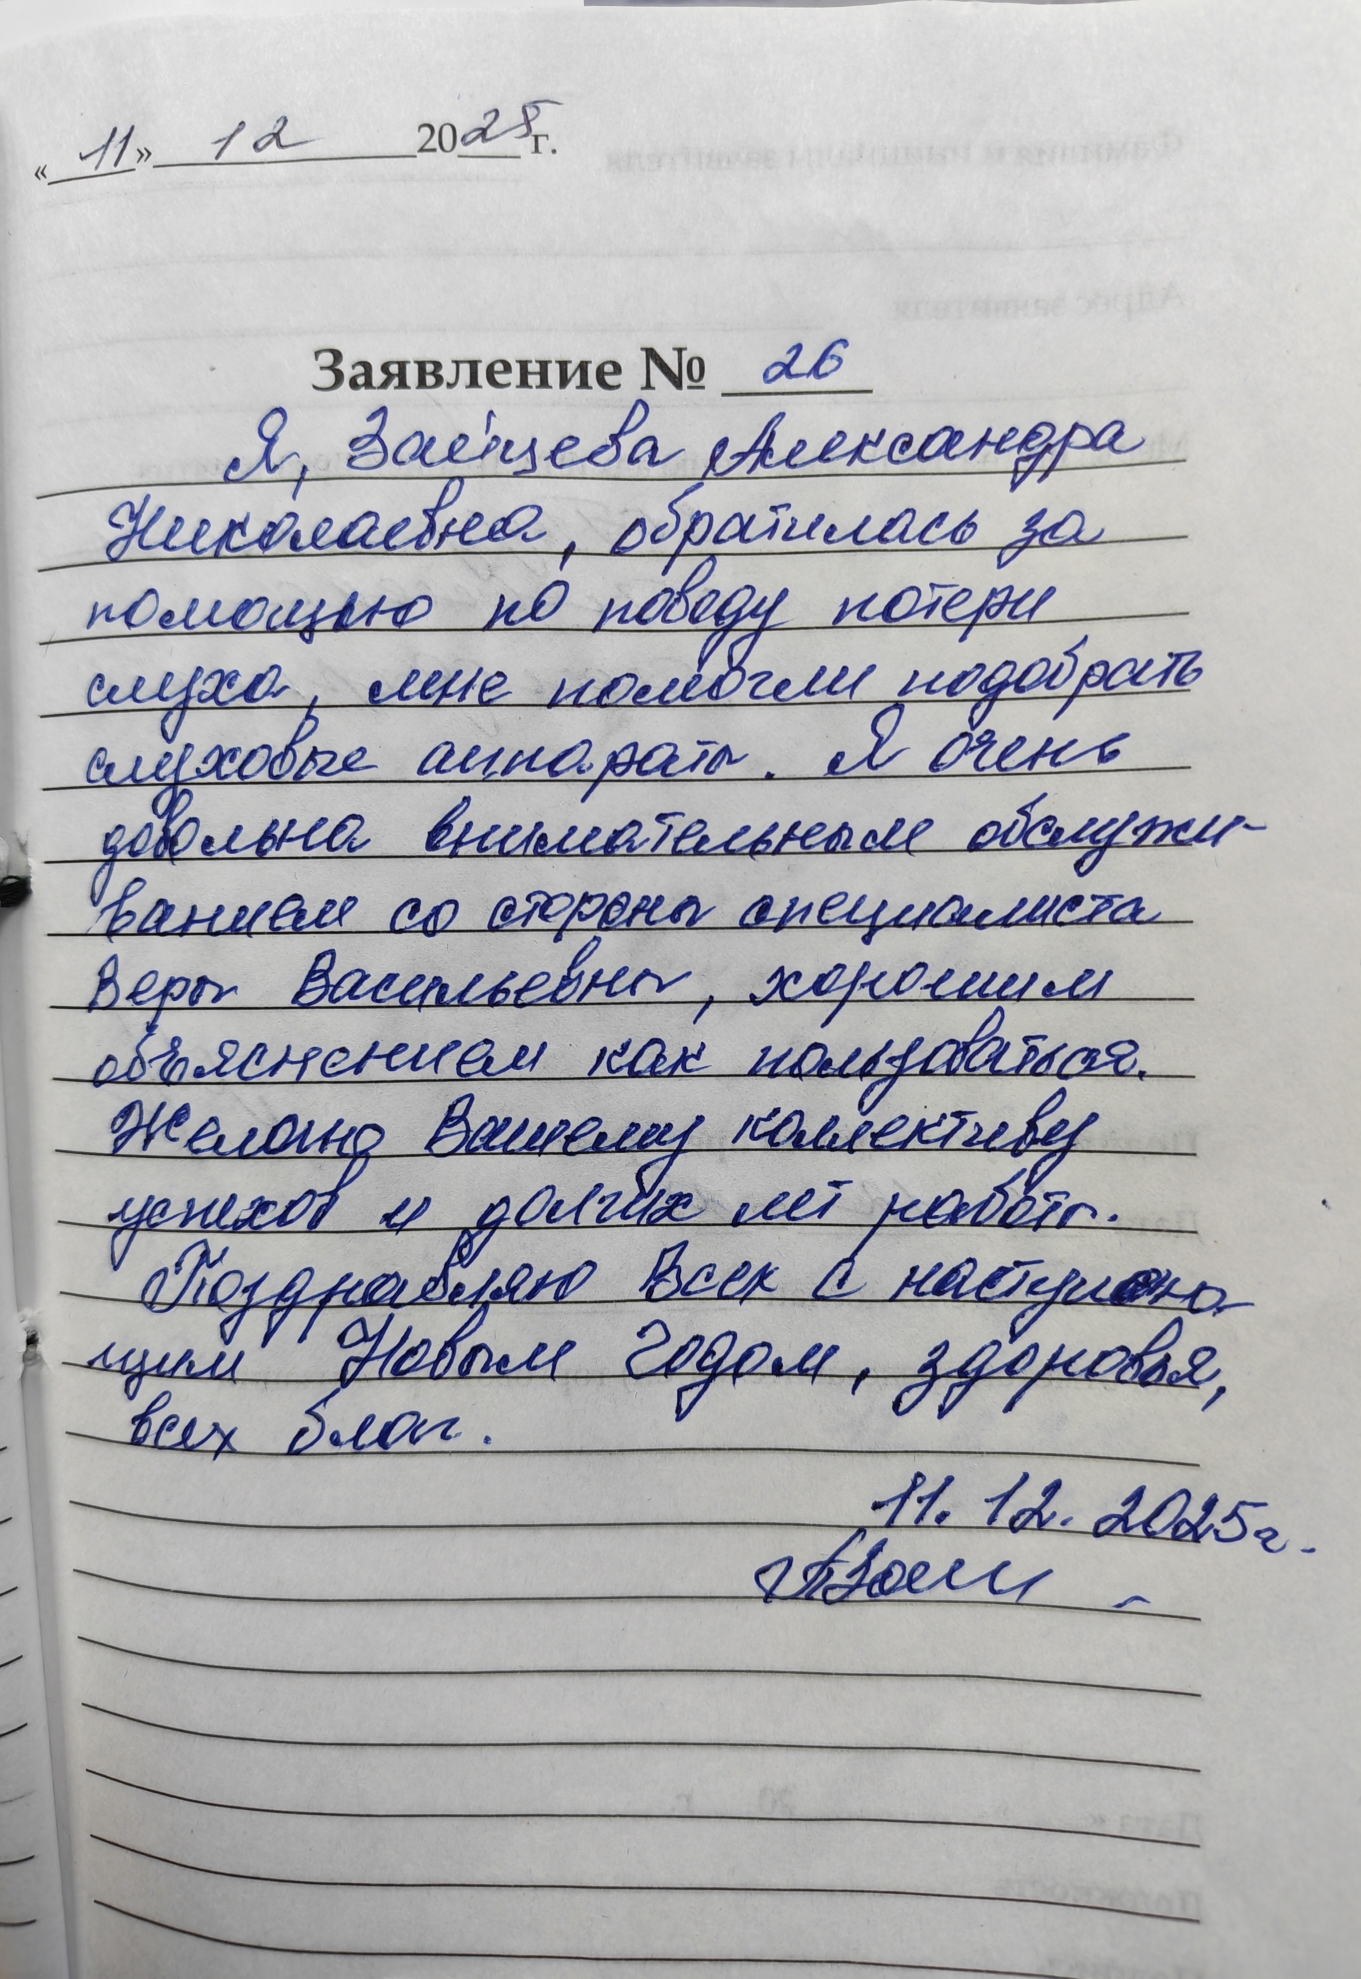 «11» 12 2025 г.
Заявление № 26
Я, Зайцева Александра
Николаевна, обратилась за
помощью по поводу потери
слуха, мне помогли подобрать
слуховые аппараты. Я очень
довольна внимательным обслужи-
ванием со стороны специалиста
Веры Васильевны, хорошим
объяснением как пользоваться.
Желаю Вашему коллективу
успехов и долгих лет работы.
Поздравляю Всех с наступаю
щим Новым Годом, здоровья,
всех благ.
11.12.2025г.